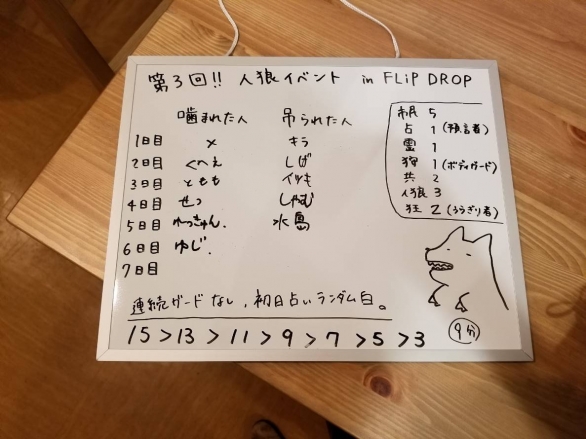 第3回!! 人狼イベント in FLiP DROP
噛まれた人 吊られた人
1日目 × キラ
2日目 くへえ しげ
3日目 ともも
4日目 せっ しゃむ
5日目 水島
6日目 ゆじ.
7日目
市民 5
占 1 (預言者)
霊 1
狩 1 (ボディガード)
共 2
人狼 3
狂 2 (うらぎり者)
連続ガードなし, 初日占いランダム白。
15 > 13 > 11 > 9 > 7 > 5 > 3
9分